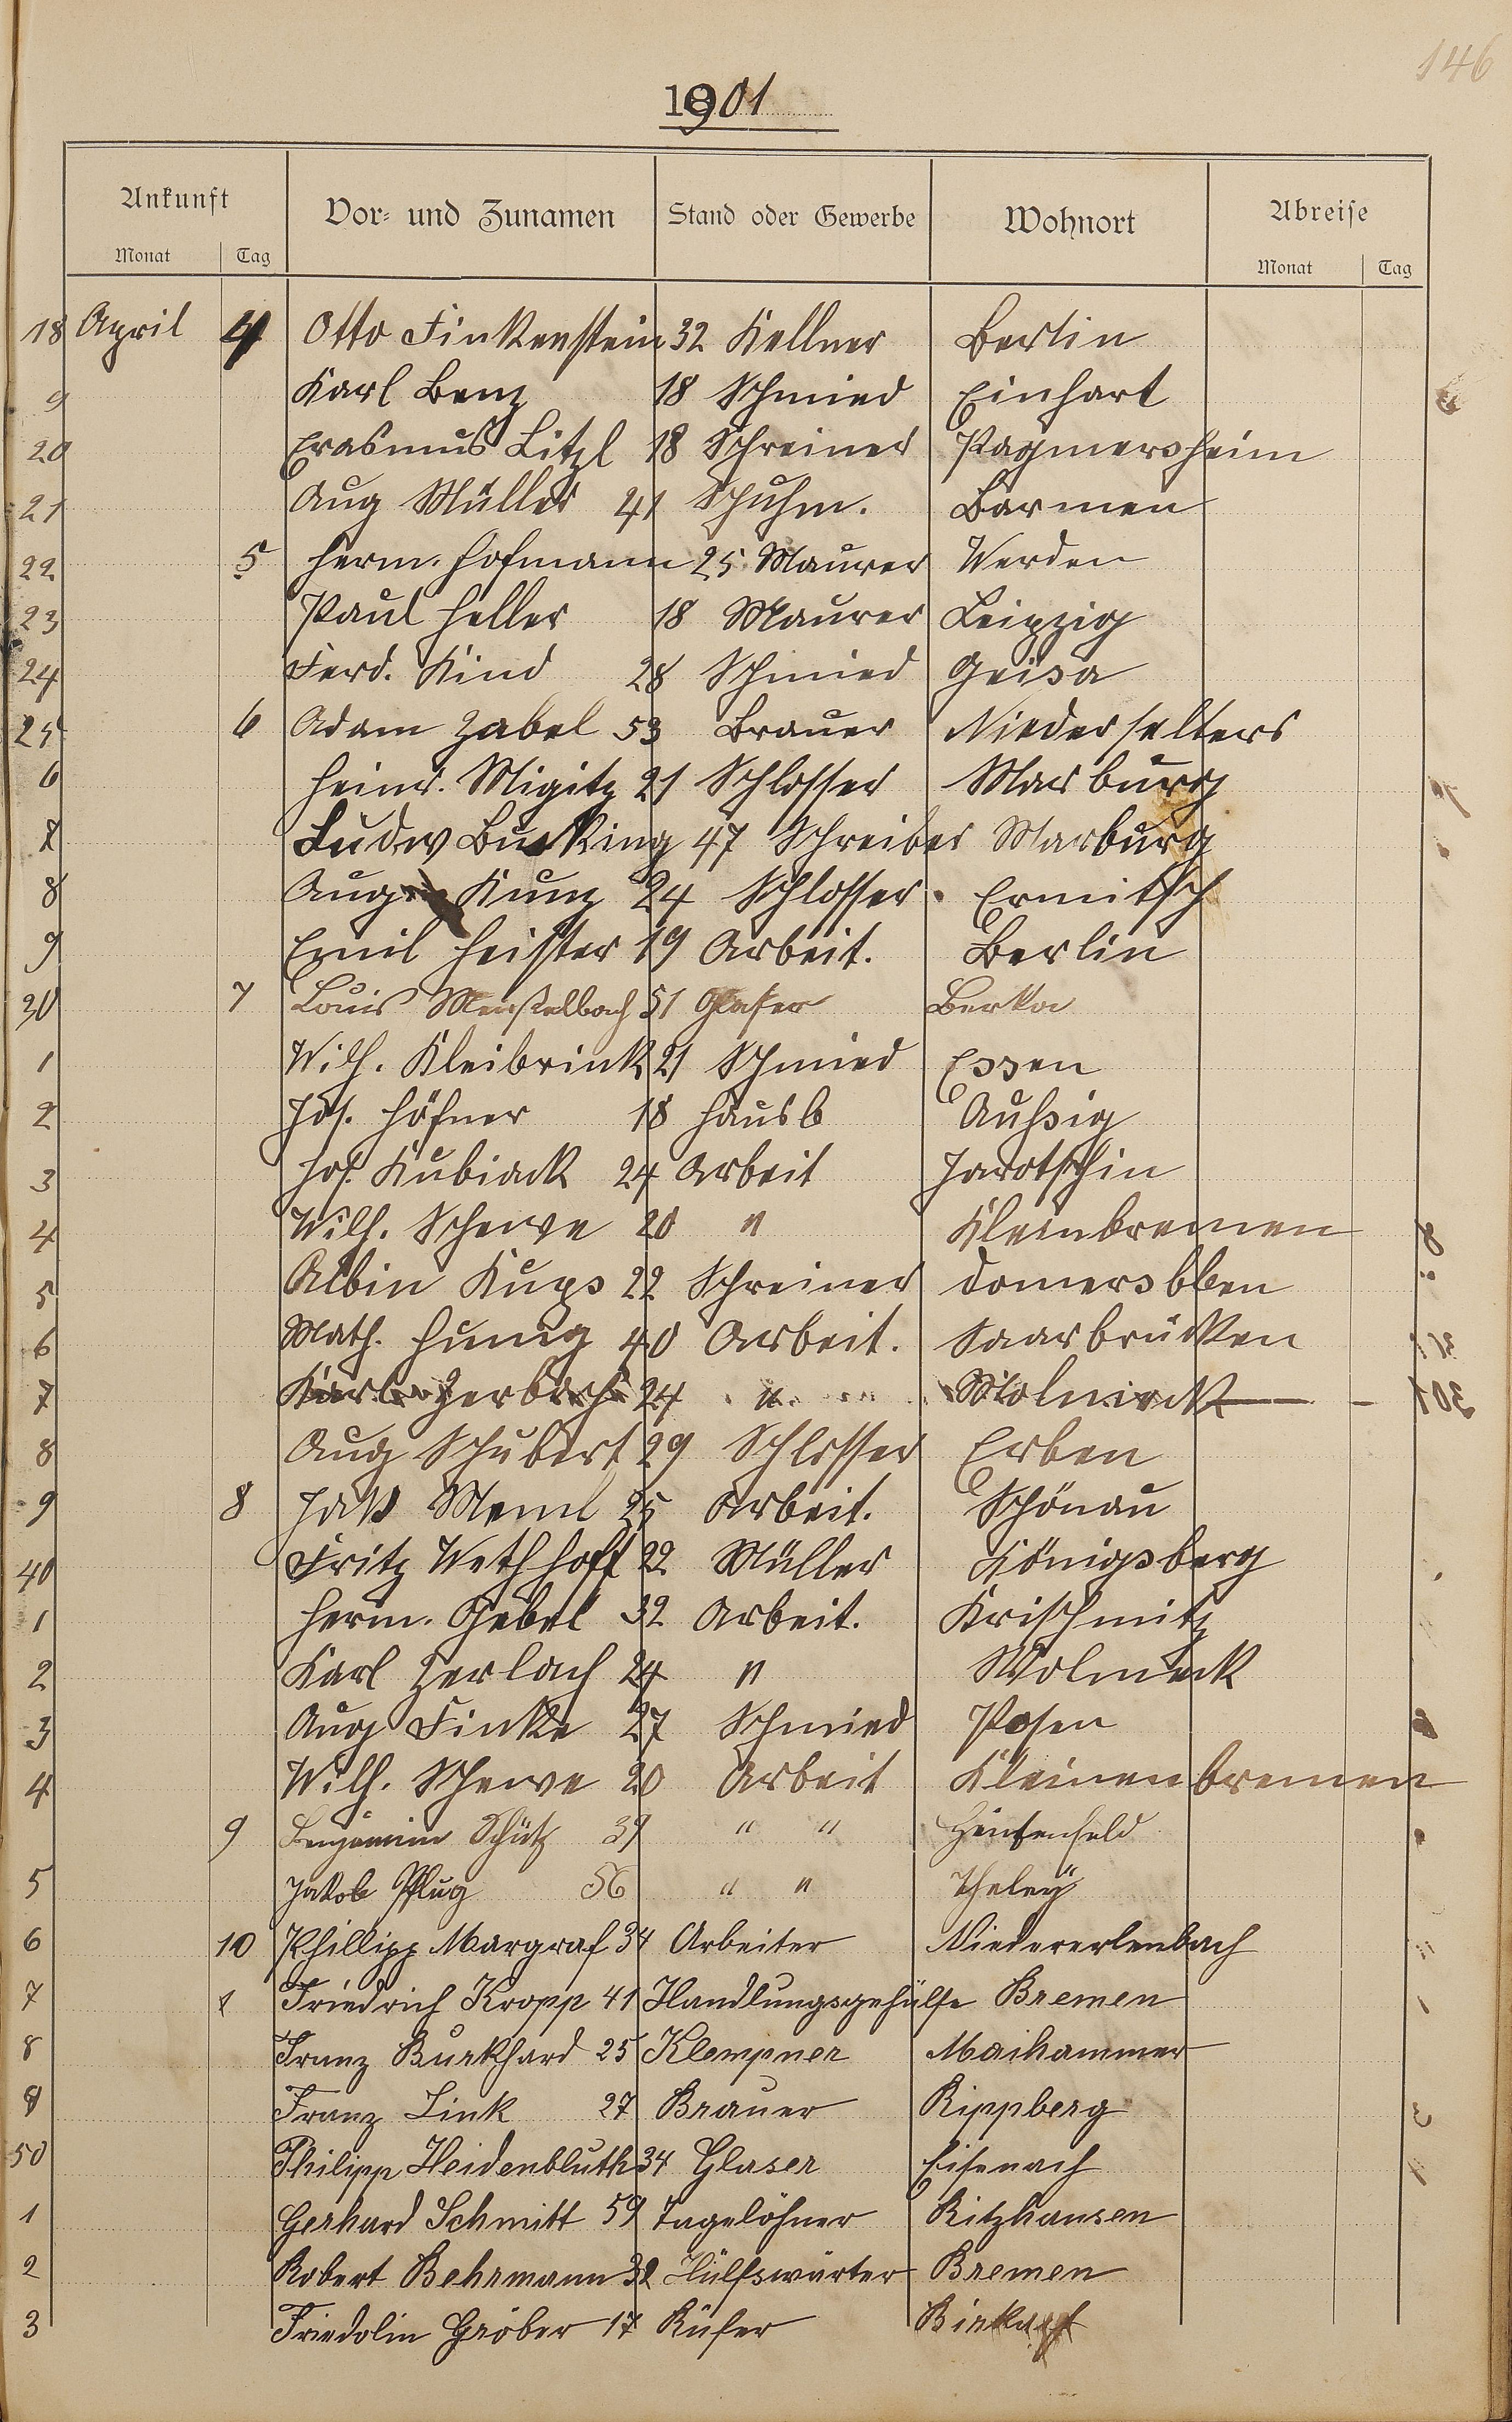 146
1901
Ankunft Vor- und Zunamen Stand oder Gewerbe Wohnort Abreise
Monat Tag Monat Tag
18 April 4 Otto Finkenstein 32 Kellner Berlin
9 Karl Benz 18 Schmied Einhart
20 Erasmus Litzl 18 Schreiner
21 Aug Müller 41 Schuhm. Barmen
22 5 Herm. Hofmann 25 Maurer Werden
23 Paul Heller 18 Maurer Leipzig
24 Ferd. Kind 28 Schmied Geisa
25 6 Adam Zabel 53 Brauer Niederselters
6 Heinr. Migitz 21 Schlosser Marburg
7 Ludw Bucking 47 Schreiber Marburg
8 Aug Kunz 24 Schlosser Ermitsch
9 Emil Heister 19 Arbeit. Berlin
30 7 Louis 51 Glaser Berka
1 Wilh. Kleibrink 21 Schmied Essen
2 Jos. Höfner 18 Hausb Aussig
3 Jos. Kubiack 24 Arbeit Jarotschin
4 Wilh. Schewe 20 " Kleinbremen
5 Albin Kups 22 Schreiner
6 Math. Hunig 40 Arbeit. Saarbrücken
7 24 "
8 Aug Schubert 29 Schlosser Erben
9 8 Jak 25 Arbeit. Schönau
40 Fritz Wethhoff 22 Müller Königsberg
1 Herm. Gebel 32 Arbeit. Krischmitz
2 Karl Zerlach 24 "
3 Aug Finke 27 Schmied Posen
4 Wilh. Schewe 20 Arbeit Kleinenbremen
9 Benjamin Schütz 39 " "
5 Jakob Pflug 56 " " Theley
6 10 Phillipp Margraf 34 Arbeiter Niedererlenbach
7 Friedrich Kropp 41 Handlungsgehülfe Bremen
8 Franz Burkhard 25 Klempner Maikammer
9 Franz Link 27 Brauer Rippberg
50 Philipp Heidenbluth 34 Glaser Eisenach
1 Gerhard Schmitt 59 Tagelöhner Ritzhausen
2 Robert Behrmann 32 Hülfswärter Bremen
3 Friedolin Gröber 17 Küfer